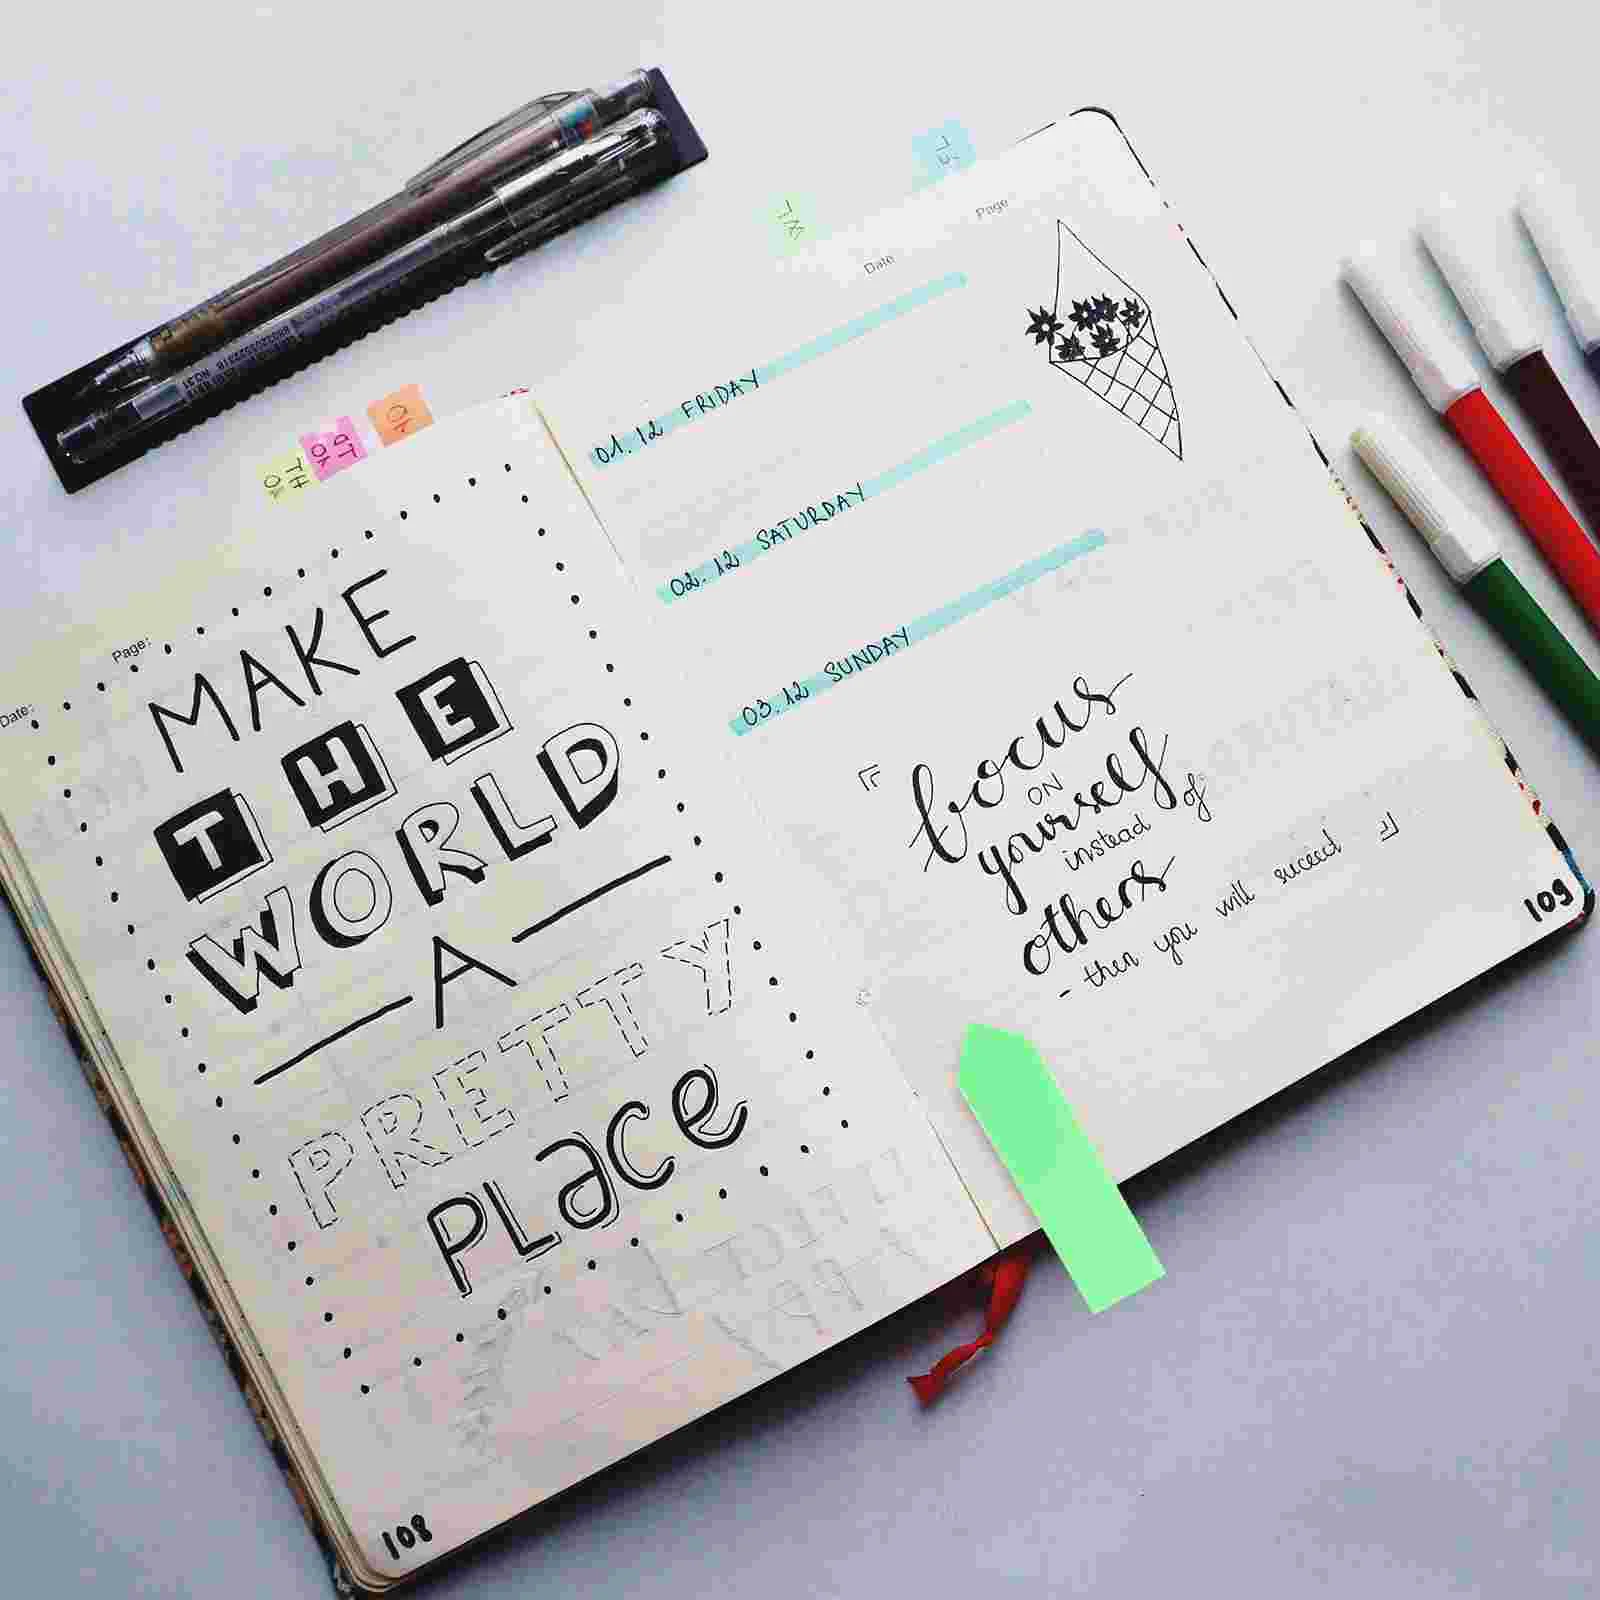 Date:
Page:
MAKE
THE
WORLD
A
PRETTY
PLace
108
Date
Page
01.12 FRIDAY
02.12 SATURDAY
03.12 SUNDAY
focus
ON
yourself
instead of
others
- then you will suceed
109